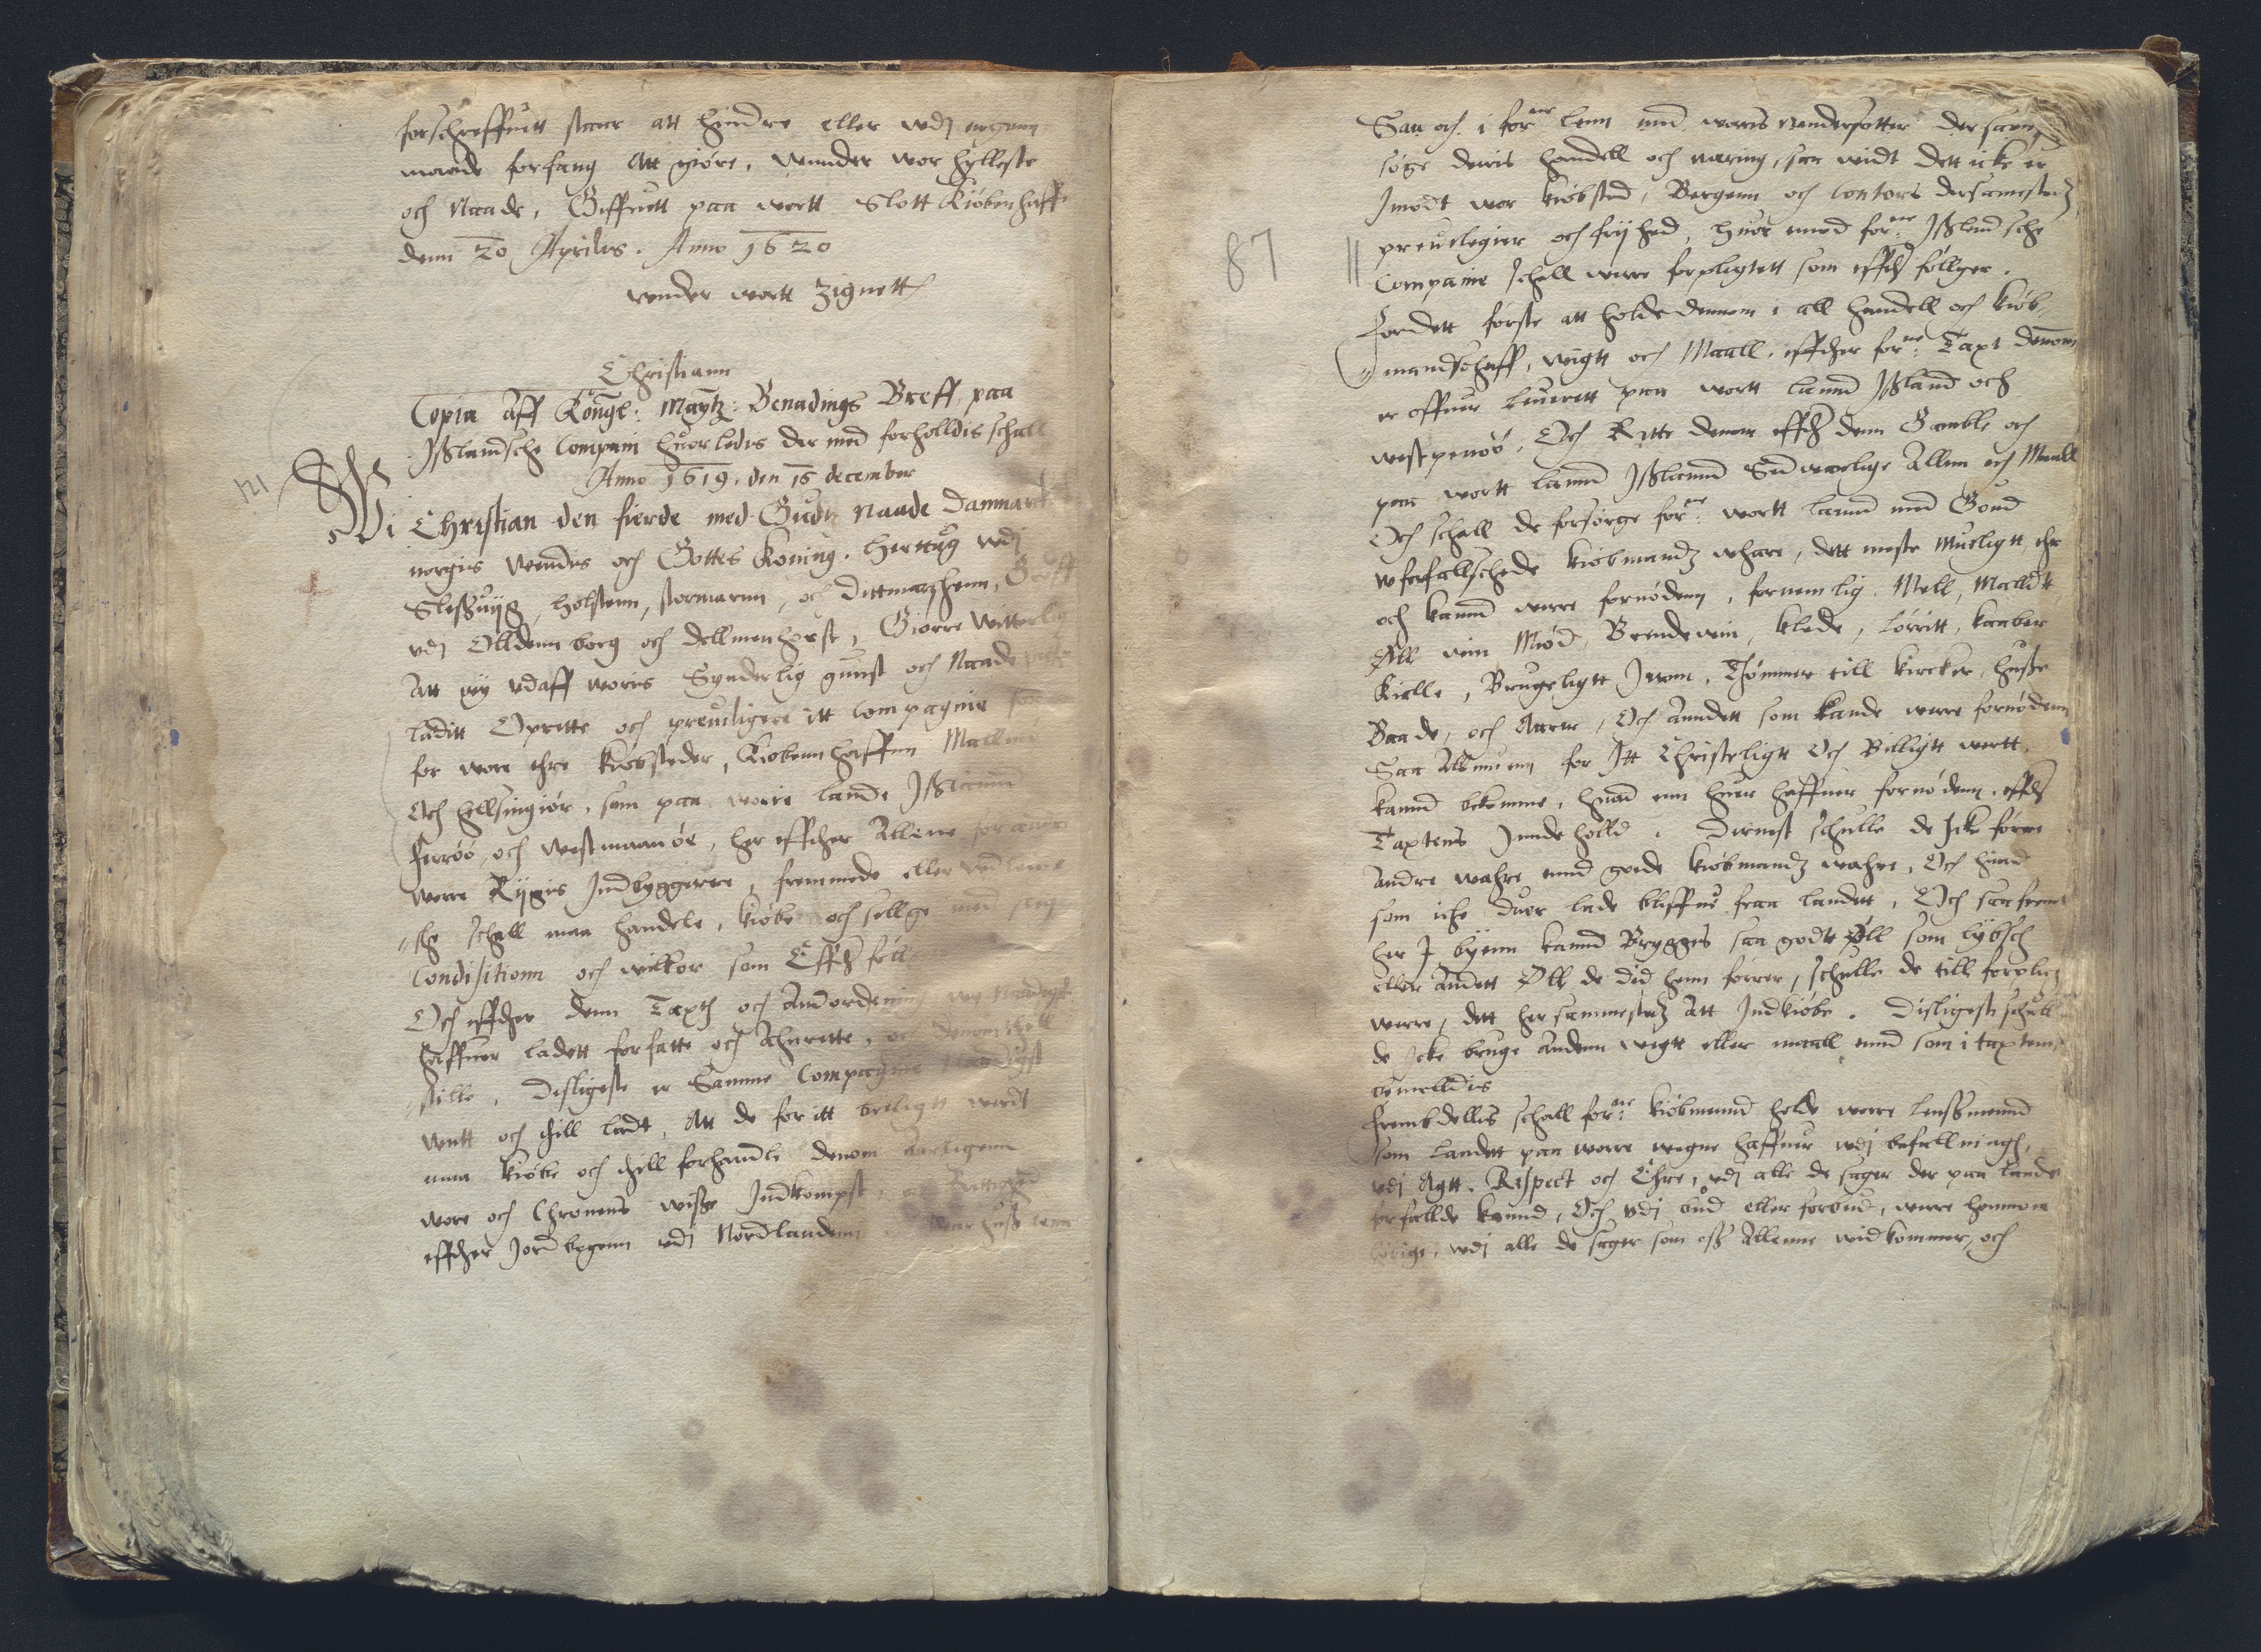 forschreffuitt staar att hindre eller wdj nogenn
maade forfang att giöre, wunder wor hÿlleste
och naade, Giffuett paa wortt Slott Kiöbenhaffn
denn 20 Aprilis. Anno 1620
wnder wortt Zignett
Christiann
Copia Aff Kongl: Maÿtz: Benadings Breff paa
Jsslandsche Compani huorledis der med forholldis schall
Anno 1619. den 16 december
121
Wi Christian den fierde med Gudz Naade Danmarck
norgis Wendis och Gottes Koning. Hertug wdj
Slessuiig, Holstenn, stormarnn, och Dittmarschenn, Greff
vdj Olldennborg och Dellmenhorst, Giörre Witterlig
Att wÿ vdaff worris Synderlig gunst och Naade
laditt Oprette och preuiligere itt Compagnie
for wore thre kiöbsteder, Kiöbennhaffnn Mallmö
Och Hellsingiör, som paa worre lande Jsslannd
Ferröö, och Westmanöe, her effther Allene for andre
worre Rÿgis Jndbÿggerre, fremmede eller
sche schall maa handele, kiöbe och sellge med
Condisitionn och wilkor som Effther
Och effther denn Taxth och Andordening wÿ
haffuer ladett forfatte och
stille. Disligeste er Samme Compagnie
wntt och thill ladt, Att de for itt billigtt werdt
maa kiöbe och thill forhandle denom aarligenn
wore och Chronens wisse Jndkompst,
effther Jordbogenn vdj Nordlandenn Warhuss lenn
87
Saa och i forne lenn med worris vndersotter dersamme
söge deris handell och næring, saa widt dett icke er
Jmodt wor kiöbsted, Bergenn och Contors dersamestedz
preuilegier och frÿhed, huor med forne: Jsslendsche
Companie schall were forpligtett som effther föllger.
Fordett förste att holde dennom i all handell och kiöb-
mandschaff, wigtt och Maall, effther forne: Taxt dennom
er offuer leuerett paa wortt lannd Jsland och
westpenöö. Och Rette denom effther denn Gamble och
paa wortt lannd Jsslannd Sedwaarlige Allen och Maall
Och schall de forsörge forne: wortt lannd med Goud
wforfallschede kiöbmandz whare, dett meste mueligtt ehr
och kannd were fornödenn, fornemlig. Mell, Malldt
Øll win Miød, Brendewin, klede, Lörritt, kaaber
kielle, Brugeligtt Jern, Thömmer till kircker, husse
Baade, och Aarne, Och Anndett som kande were fornödenn
Saa Allmuenn for Jtt Christeligtt Och Billigtt wertt.
kannd bekomme, huad enn huer haffuer fornödenn, effther
Taxtens Jnndeholld. Dernest schulle de Jcke förre
Andre wahre end gode kiöbmandz wahre, Och huad
som icke duer lade bliffue fraa landett, Och saafremt
her J bÿenn kannd Brÿgges saa godt Øll som lÿbsch
eller Andett Øll de did henn förrer, schulle de till forplict
werre, dett hersammestedz Att Jndkiöbe. Disligest schull
de Jcke bruge Andenn wegtt eller maall end som i taxtenn
ommelldis
Frembdellis schall forne: kiöbmennd holde worre lenssmennd
som landett paa worre wegne haffuer wdj befallningh,
vdj Agtt. Respect och Ehre, vdj alle de sager der paa lande
forfallde kannd, Och vdj bud eller forbud, werre hannom
lörige, wdj alle de sager som oss Allenne widkommer, och